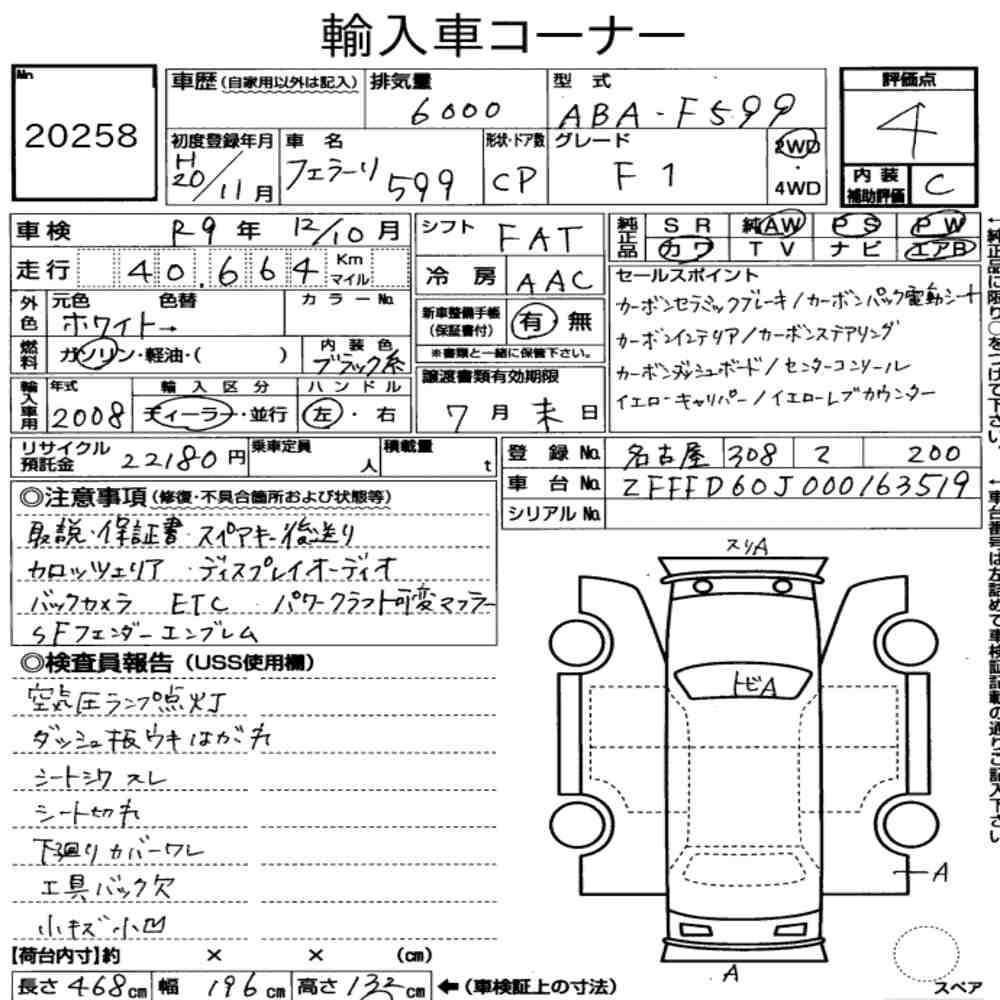 輸入車コーナー
No
20258
車歴 (自家用以外は記入)
排気量
6000
型式
ABA-F599
初度登録年月
H20/11月
車名
フェラーリ 599
形状・ドア数
CP
グレード
F1
2WD
・
4WD
評価点
4
内装補助評価
C
車検 R9年 12/10月
走行 40.664 Km マイル
外色
元色
ホワイト→
色替
カラーNo.
燃料
ガソリン・軽油・( )
内装色
ブラック系
輸入車用
年式
2008
輸入区分
ディーラー・並行
ハンドル
左・右
シフト FAT
冷房 AAC
新車整備手帳(保証書付) 有・無
※書類と一緒に保管下さい。
譲渡書類有効期限
7月末日
純正品
SR 純AW PS PW
カワ TV ナビ エアB
セールスポイント
カーボンセラミックブレーキ/カーボンバック電動シート
カーボンインテリア/カーボンステアリング
カーボンダッシュボード/センターコンソール
イエローキャリパー/イエローレブカウンター
←純正品に限り○をつけて下さい。
リサイクル預託金 22180円
乗車定員 人
積載量 t
登録No. 名古屋 308 200
車台No. ZFFFD60J000163519
シリアルNo.
←車台番号は左詰めで車検証記載の通りご記入下さい
◎注意事項(修復・不具合箇所および状態等)
取説・保証書・スペアキー後送り
カロッツェリア ディスプレイオーディオ
バックカメラ ETC パワークラフト可変マフラー
SFフェンダーエンブレム
◎検査員報告(USS使用欄)
空気圧ランプ点灯
ダッシュ板ウキはがれ
シートシワスレ
シート切れ
下廻りカバーワレ
工具バック欠
小キズ小凹
スリA
トビA
A
A
スペア
【荷台内寸】約 × × (cm)
長さ468cm 幅196cm 高さ133cm ←(車検証上の寸法)